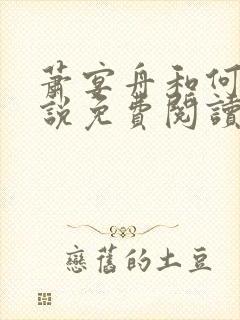 蕭宴舟和何
說免費閱讀
戀舊的土豆